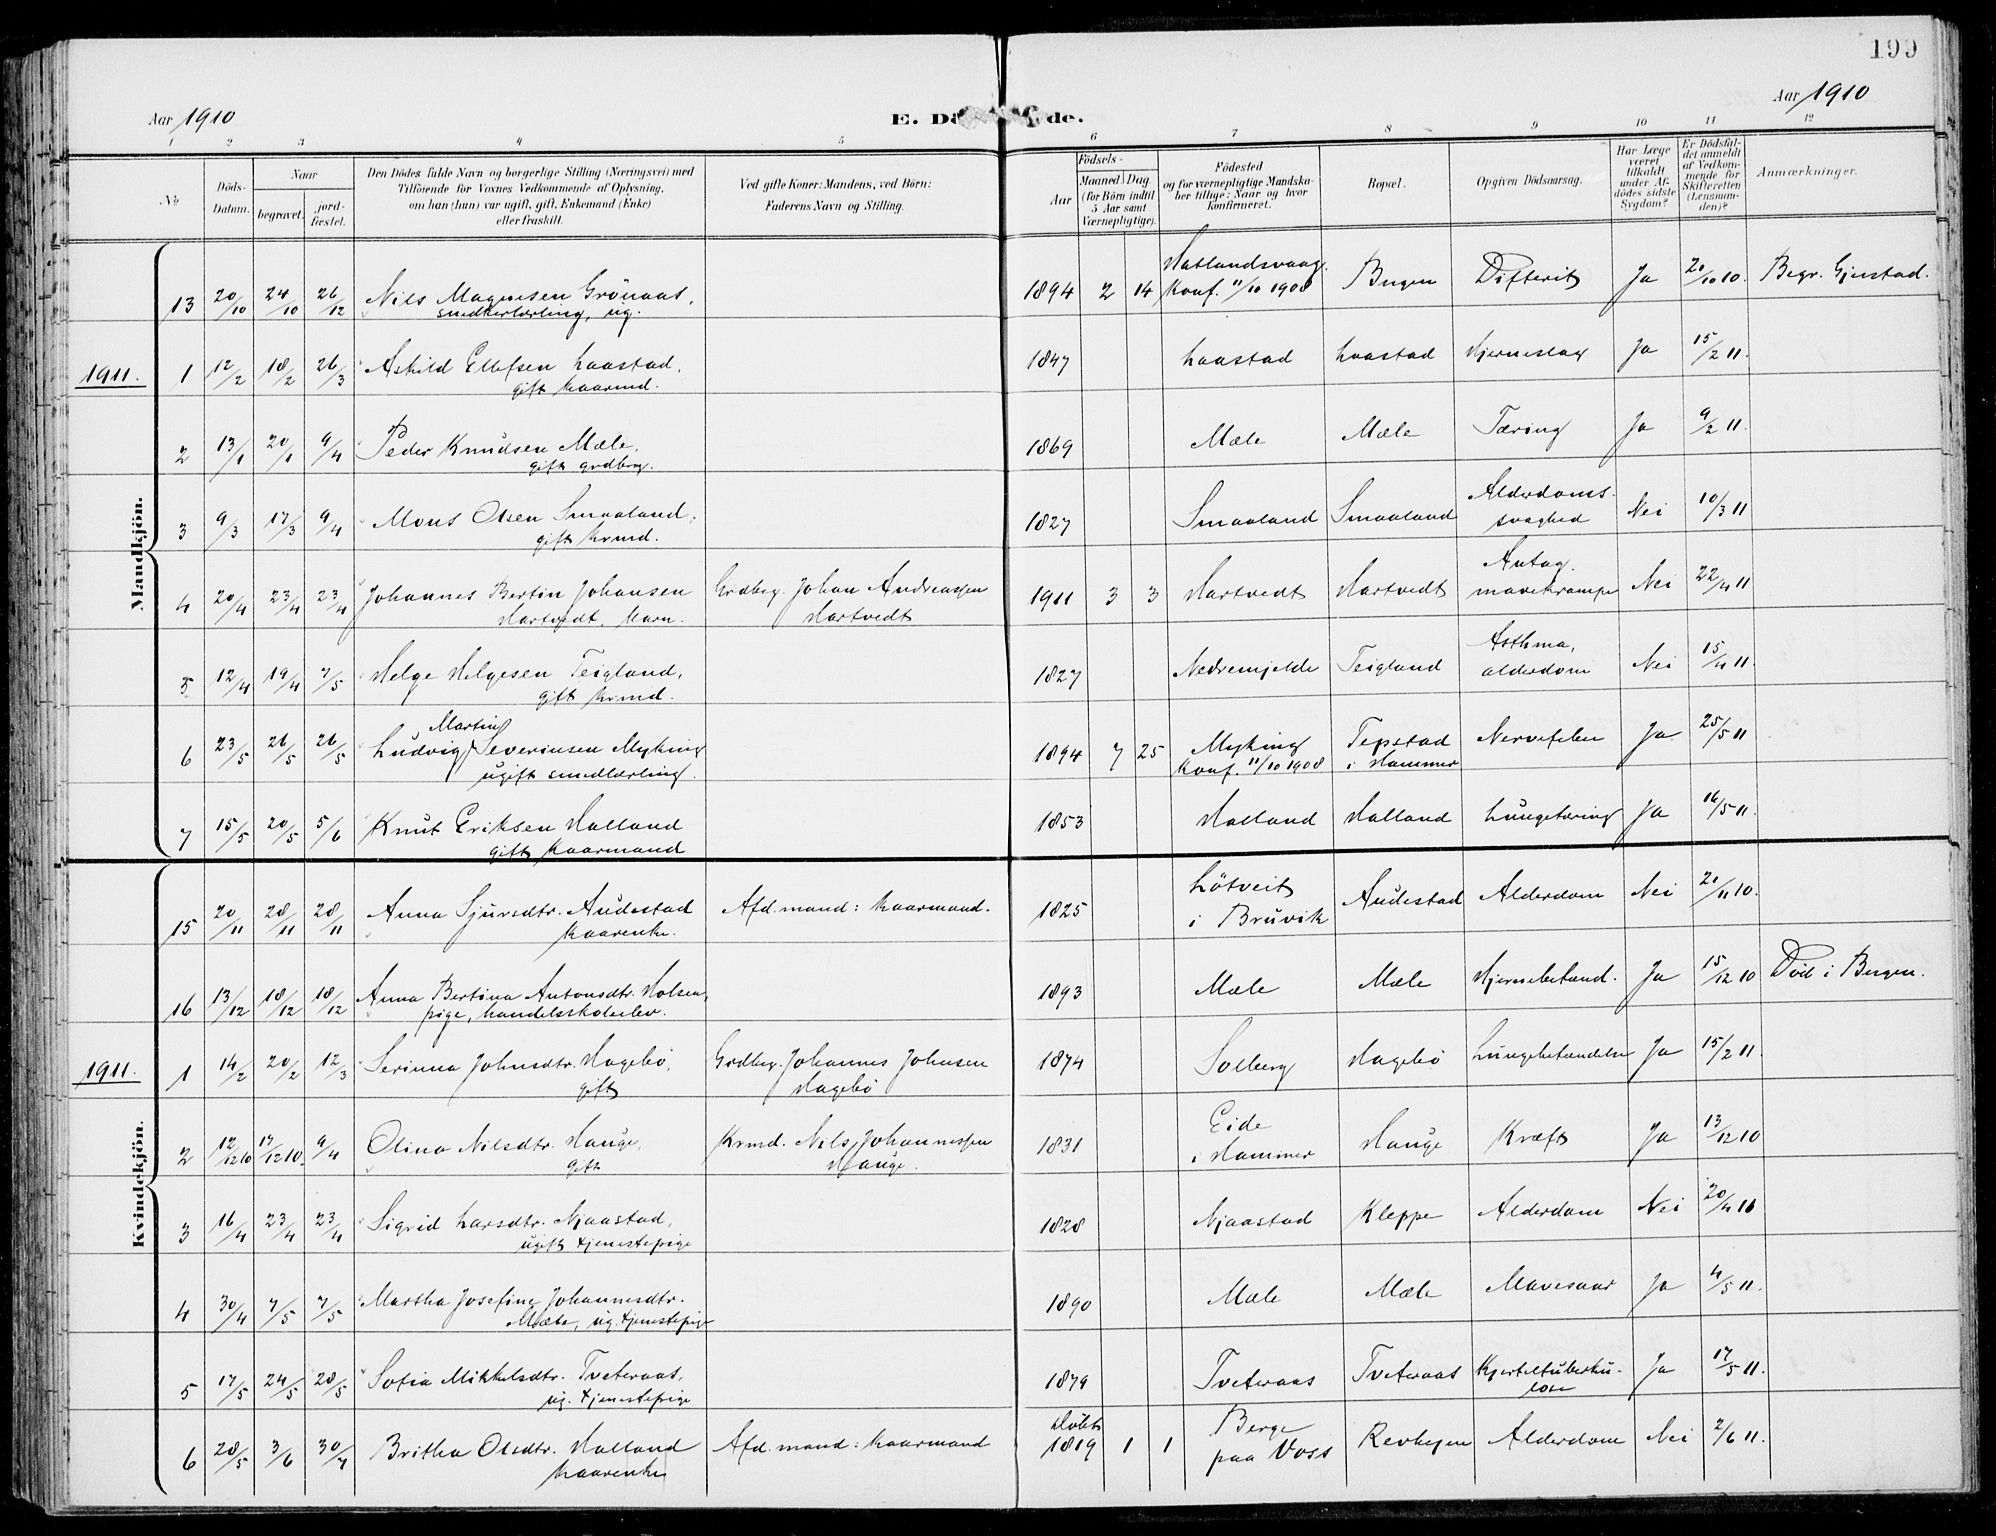 199
Aar 1910
E. Dö de.
Aar 1910
1 2 3 4 5 6 7 8 9 10 11 12
No
Döds-Datum.
Naar begravet. jord-fæstet.
Den Dödes fulde Navn og borgerlige Stilling (Næringsvei) med
Tilföiende for Voxnes Vedkommende af Oplysning,
om han (hun) var ugift, gift, Enkemand (Enke)
eller fraskilt.
Ved gifte Koner: Mandens, ved Börn:
Faderens Navn og Stilling.
Födsels-
Aar Maaned Dag
(for Börn indtil 5 Aar samt Værnepligtige).
Födested
og for værnepligtige Mandska-
ber tillige: Naar og hvor
konfirmeret.
Bopæl.
Opgiven Dödsaarsag.
Har Læge været tilkaldt under Af-dödes sidste Sygdom?
Er Dödsfal-det anmeldt af Vedkom-mende for Skifteretten (Lensman-den)?
Anmærkninger.
Mandkjön.
13 20/10 24/10 26/12 Nils Magnesen Grönaas, 1894 2 14 Hatlandsvaag. Bergen Difterit Ja 20/10 10. Begr. Gjerstad.
snedkerlærling, ug. Konf. 11/10 1908
1911. 1 12/2 18/2 26/3 Askild Ellefsen Laastad, 1847 Laastad Laastad Hjerneslag Ja 15/2 11.
gift kaarmd.
2 13/1 20/1 9/4 Peder Knudsen Mæle, 1869 Mæle Mæle Tæring Ja 9/2 11.
gift grdbrg.
3 9/3 17/3 9/4 Mons Olsen Smaaland, 1827 Smaaland Smaaland Alderdoms-svaghed Nei 10/3 11
gift krmd.
4 20/4 23/4 23/4 Johannes Bertin Johansen Grdbrg. Johan Andreassen 1911 3 3 Hartvedt Hartvedt Antag. mavekrampe Nei 22/4 11
Hartvedt, barn. Hartvedt
5 12/4 19/4 7/5 Helge Helgesen Teigland, 1827 Nedremjelde Teigland Asthma, alderdom Nei 15/4 11.
gift krmd.
6 23/5 26/5 26/5 Ludvig Martin Severinsen Myking 1894 7 25 Myking Tepstad Nervefeber Ja 25/5 11
ugift smedlærling. Konf. 11/10 1908 i Hammer
7 15/5 20/5 5/6 Knut Eriksen Halland 1853 Halland Halland Lungetæring Ja 16/5 11.
gift kaarmand
Kvindekjön.
15 20/11 28/11 28/11 Anna Sjursdtr. Audestad Afd. mand: kaarmand. 1825 Lötveit i Bruvik Audestad Alderdom Nei 20/11 10.
kaarenke.
16 13/12 18/12 18/12 Anna Bertina Antonsdtr. Holsen, 1893 Mæle Mæle Hjernebetænd. Ja 15/12 10 Död i Bergen.
pige, handelsskoleelev.
1911. 1 14/2 20/2 12/3 Serinna Johnsdtr. Hagebö, Grdbrg. Johannes Johnsen 1874 Solberg Hagebö Lungebetændelse Ja 15/2 11.
gift Hagebö
2 12/12 10 17/12 10. 9/4 Olina Nilsdtr. Hauge, Krmd. Nils Johannessen 1831 Eide i Hammer Hauge Kræft Ja 13/12 10
gift Hauge.
3 16/4 23/4 23/4 Sigrid Larsdtr. Njaastad, 1828 Njaastad Kleppe Alderdom Nei 20/4 11
ugift tjenestepige
4 30/4 7/5 7/5 Martha Josefine Johannesdtr. 1890 Mæle Mæle Mavesaar Ja 4/5 11.
Mæle, ug. tjenestepige
5 17/5 24/5 28/5 Sofia Mikkelsdtr. Tveteraas, 1879 Tveteraas Tveteraas Kjerteltuberku-lose Ja 17/5 11.
ug. tjenestepige
6 28/5 3/6 30/7 Britha Olsdtr. Halland Afd. mand: kaarmand döbt 1819 1 1 Berge paa Voss Revheien Alderdom Nei 2/6 11.
kaarenke